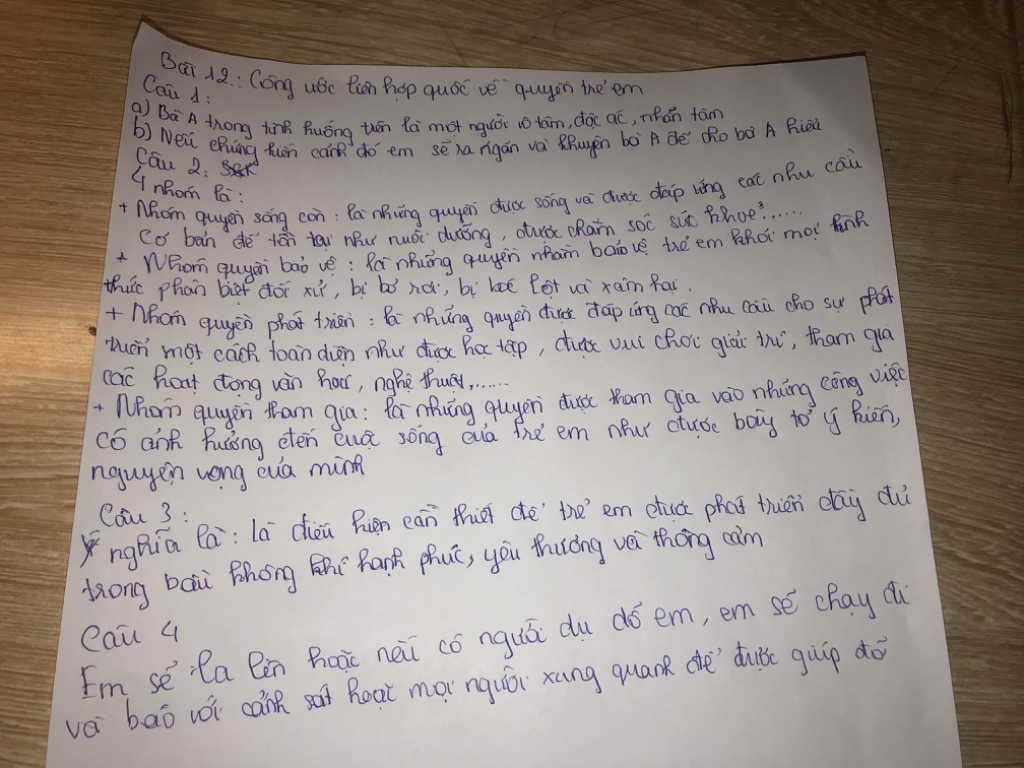 Bài 12: Công ước liên hợp quốc về quyền trẻ em
Câu 1:
a) Bà A trong tình huống trên là một người vô tâm, độc ác, nhẫn tâm
b) Nếu chứng kiến cảnh đó em sẽ ra ngăn và khuyên bà A để cho bà A hiểu
Câu 2: SGK
4 nhóm là:
+ Nhóm quyền sống còn: là những quyền được sống và được đáp ứng các nhu cầu
cơ bản để tồn tại như nuôi dưỡng, được chăm sóc sức khoẻ......
+ Nhóm quyền bảo vệ: là những quyền nhằm bảo vệ trẻ em khỏi mọi hình
thức phân biệt đối xử, bị bỏ rơi, bị bóc lột và xâm hại.
+ Nhóm quyền phát triển: là những quyền được đáp ứng các nhu cầu cho sự phát
triển một cách toàn diện như được học tập, được vui chơi giải trí, tham gia
các hoạt động văn hoá, nghệ thuật,......
+ Nhóm quyền tham gia: là những quyền được tham gia vào những công việc
có ảnh hưởng đến cuộc sống của trẻ em như được bày tỏ ý kiến,
nguyện vọng của mình
Câu 3:
Ý nghĩa là: là điều kiện cần thiết để trẻ em được phát triển đầy đủ
trong bầu không khí hạnh phúc, yêu thương và thông cảm
Câu 4
Em sẽ la lên hoặc nếu có người dụ dỗ em, em sẽ chạy đi
và báo với cảnh sát hoặc mọi người xung quanh để được giúp đỡ